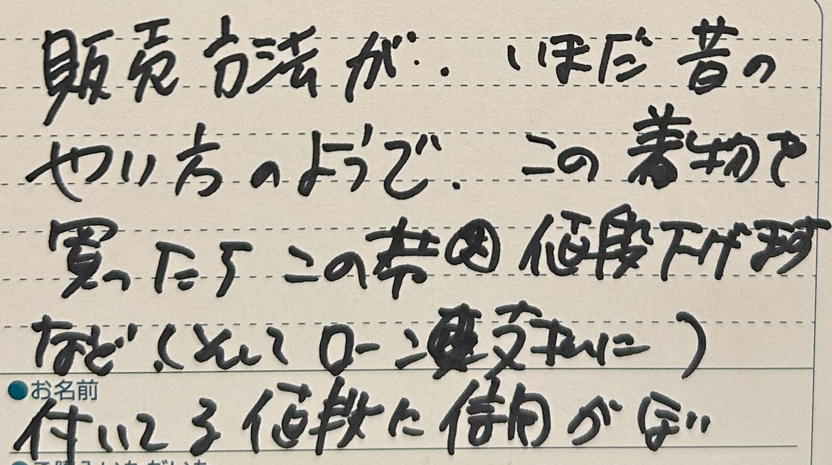 販売方法が、いまだ昔の
やり方のようで、この着物を
買ったらこの帯 値段下げます
など、(そしてローン 支払いに)
●お名前
付いてる値段に信用がない